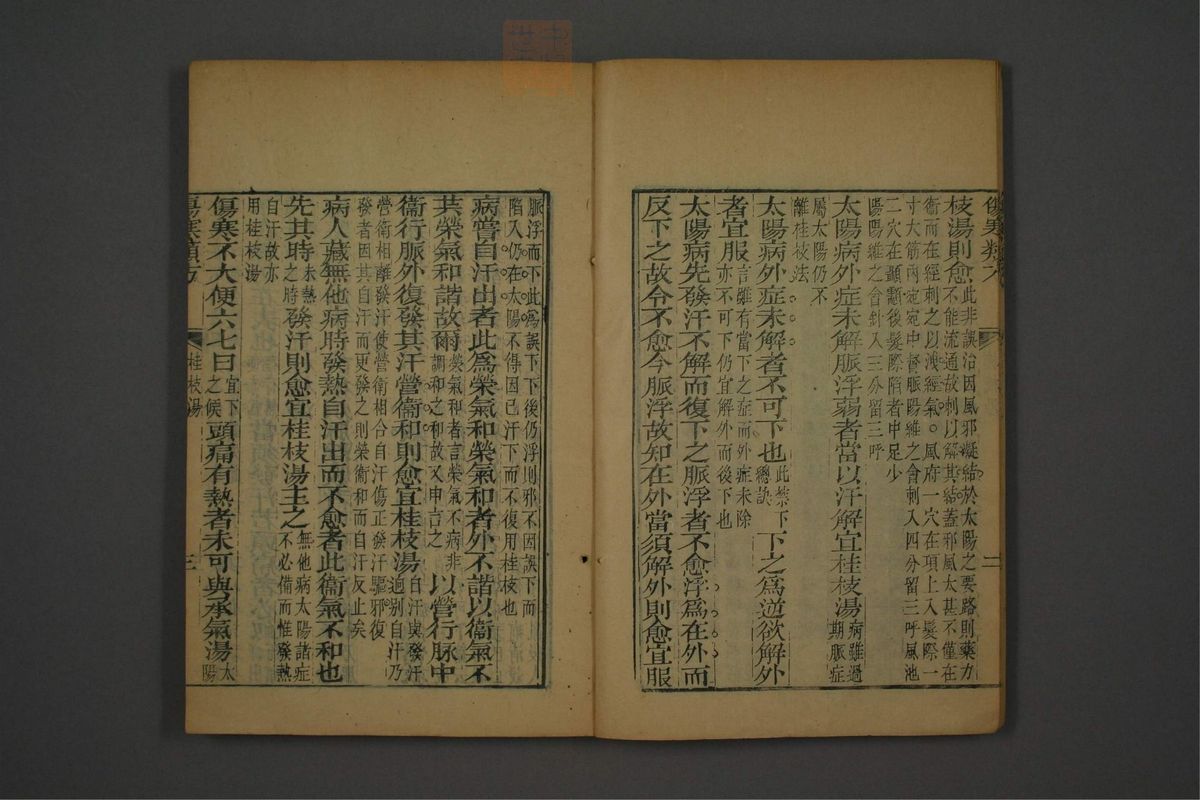 枝湯則愈此非誤治因風邪凝結於太陽之要路則藥力
不能流通故刺以解其結蓋邪風太甚不僅在
衛而在經刺之以洩經氣風府一穴在項上入髮際一
寸大筋內宛宛中督脈陽維之會刺入四分留三呼風池
二穴在顳顬後髮際陷者中足少
陽陽維之會針入三分留三呼
太陽病外症未解脈浮弱者當以汗解宜桂枝湯病雖過
期脈症
屬太陽仍不
離桂枝法
太陽病外症未解者不可下也此禁下
總訣下之為逆欲解外
者宜服言雖有當下之症而外症未除
亦不可下仍宜解外而後下也
太陽病先發汗不解而復下之脈浮者不愈浮為在外而
反下之故令不愈今脈浮故知在外當須解外則愈宜服
二
脈浮而下此為誤下下後仍浮則邪不因誤下而
陷入仍在太陽不得因已汗下而不復用桂枝也
病嘗自汗出者此為榮氣和榮氣和者外不諧以衛氣不
共榮氣和諧故爾榮氣和者言榮氣不病非
調和之和故又申言之以營行脈中
衛行脈外復發其汗營衛和則愈宜桂枝湯自汗與發汗
迥別自汗乃
營衛相離發汗使營衛相合自汗傷正發汗驅邪復
發者因其自汗而更發之則榮衛和而自汗反止矣
病人藏無他病時發熱自汗出而不愈者此衛氣不和也
先其時未熱
之時發汗則愈宜桂枝湯主之無他病太陽諸症
不必備而惟發熱
自汗故亦
用桂枝湯
傷寒不大便六七日宜下
之候頭痛有熱者未可與承氣湯太
陽
傷寒類方
桂枝湯
三